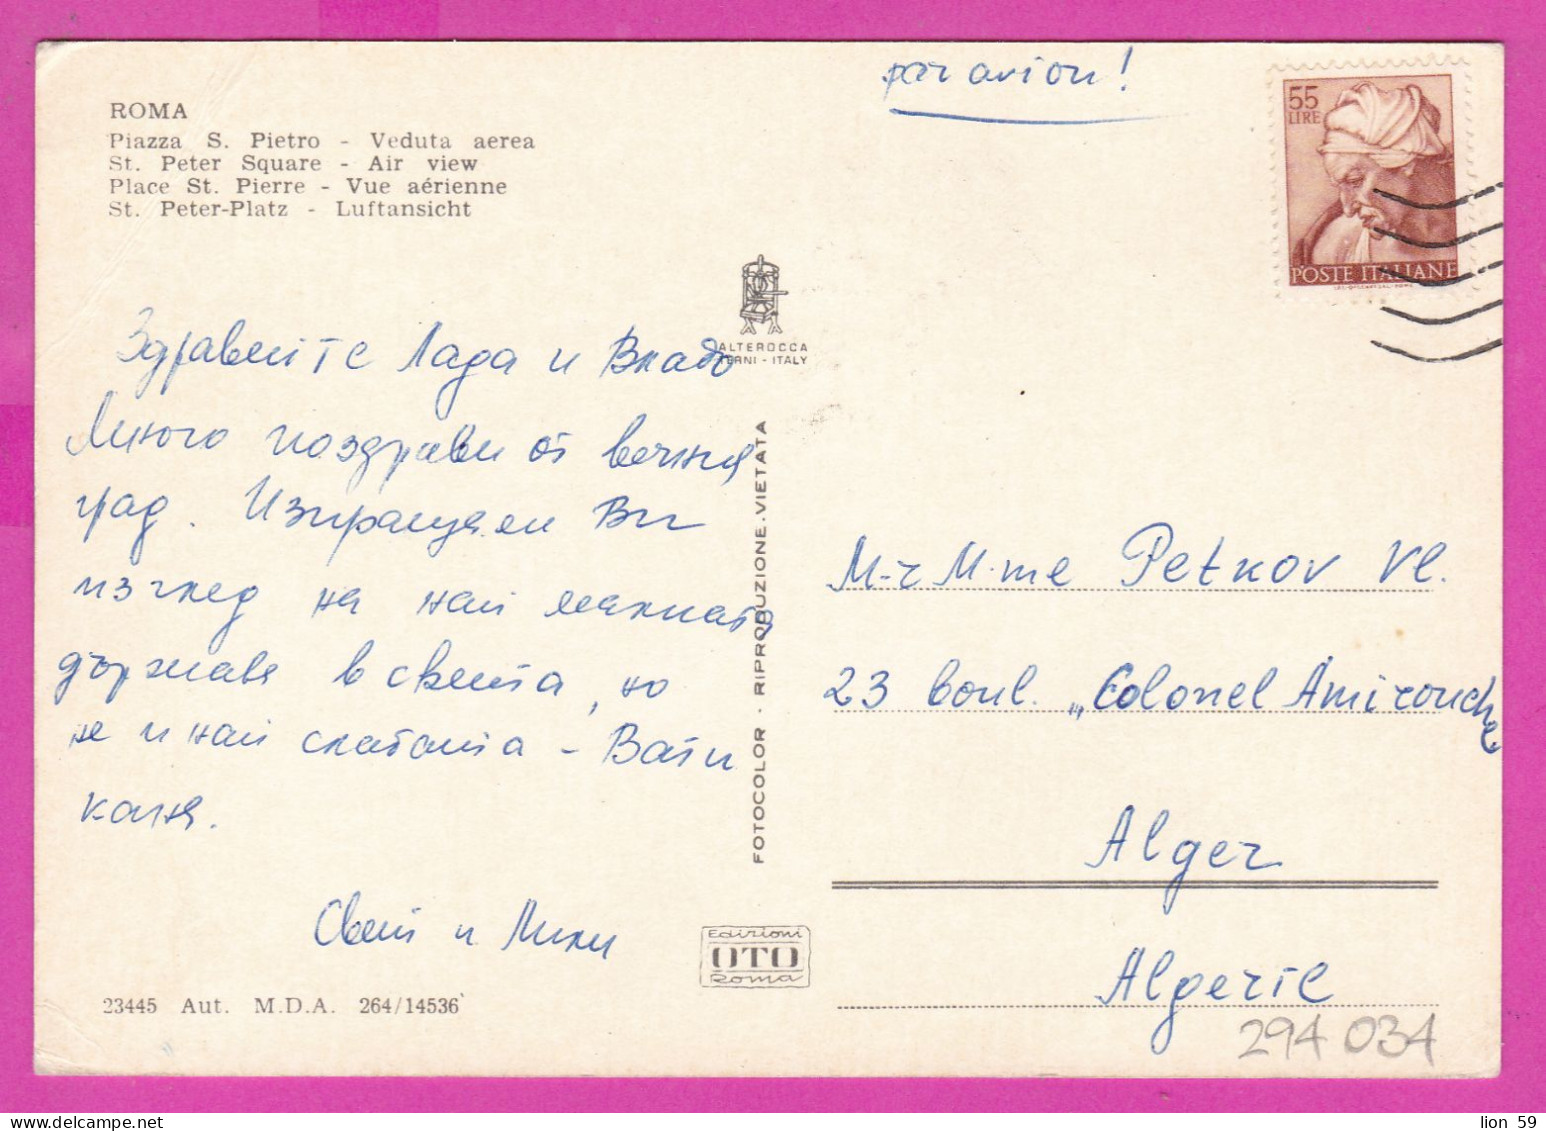 par avion!
55
LIRE
POSTE ITALIANE
ROMA
Piazza S. Pietro - Veduta aerea
St. Peter Square - Air view
Place St. Pierre - Vue aérienne
St. Peter-Platz - Luftansicht
ALTEROCCA
TERNI - ITALY
Здравейте Лада и Владо
Много поздрави от вечния
град. Изпращаме Ви
изглед на най малката
държава в света, но
не и най слабата - Вати
каня.
Свет и Мики
FOTOCOLOR - RIPRODUZIONE VIETATA
M-r M-me Petkov Vl.
23 boul. „Colonel Amirouche
Alger
Algerie
Edizioni
OTO
Roma
23445 Aut. M.D.A. 264/14536
294 034
lion 59